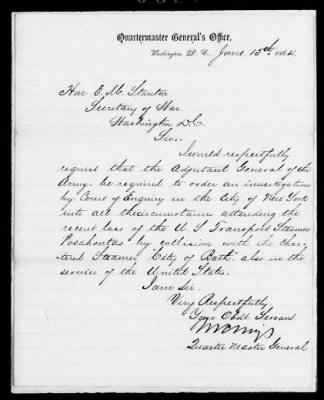 Quartermaster General's Office,
Washington, D. C. June 15th, 1864.
Hon E. M. Stanton
Secretary of War.
Washington D.C.
Sir.
I would respectfully
request that the Adjutant General of the
Army, be required to order an investigation
by Court of Enquiry in the City of New York
into all the circumstances attending the
recent loss of the U. S. Transport Steamer
Pocahontas by collision with the char-
tered Steamer "City of Bath" also in the
service of the United States.
I am sir.
Very Respectfully
Your Obdt. Servant
Quarter Master General